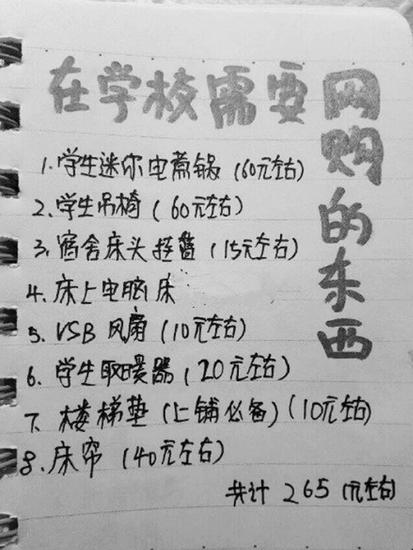 在学校需要网购的东西
1.学生迷你电煮锅(60元左右)
2.学生吊椅(60元左右)
3.宿舍床头挂篮(15元左右)
4.床上电脑床
5.USB风扇(10元左右)
6.学生取暖器(20元左右)
7.楼梯垫(上铺必备)(10元左右)
8.床帘(40元左右)
共计265(元左右)